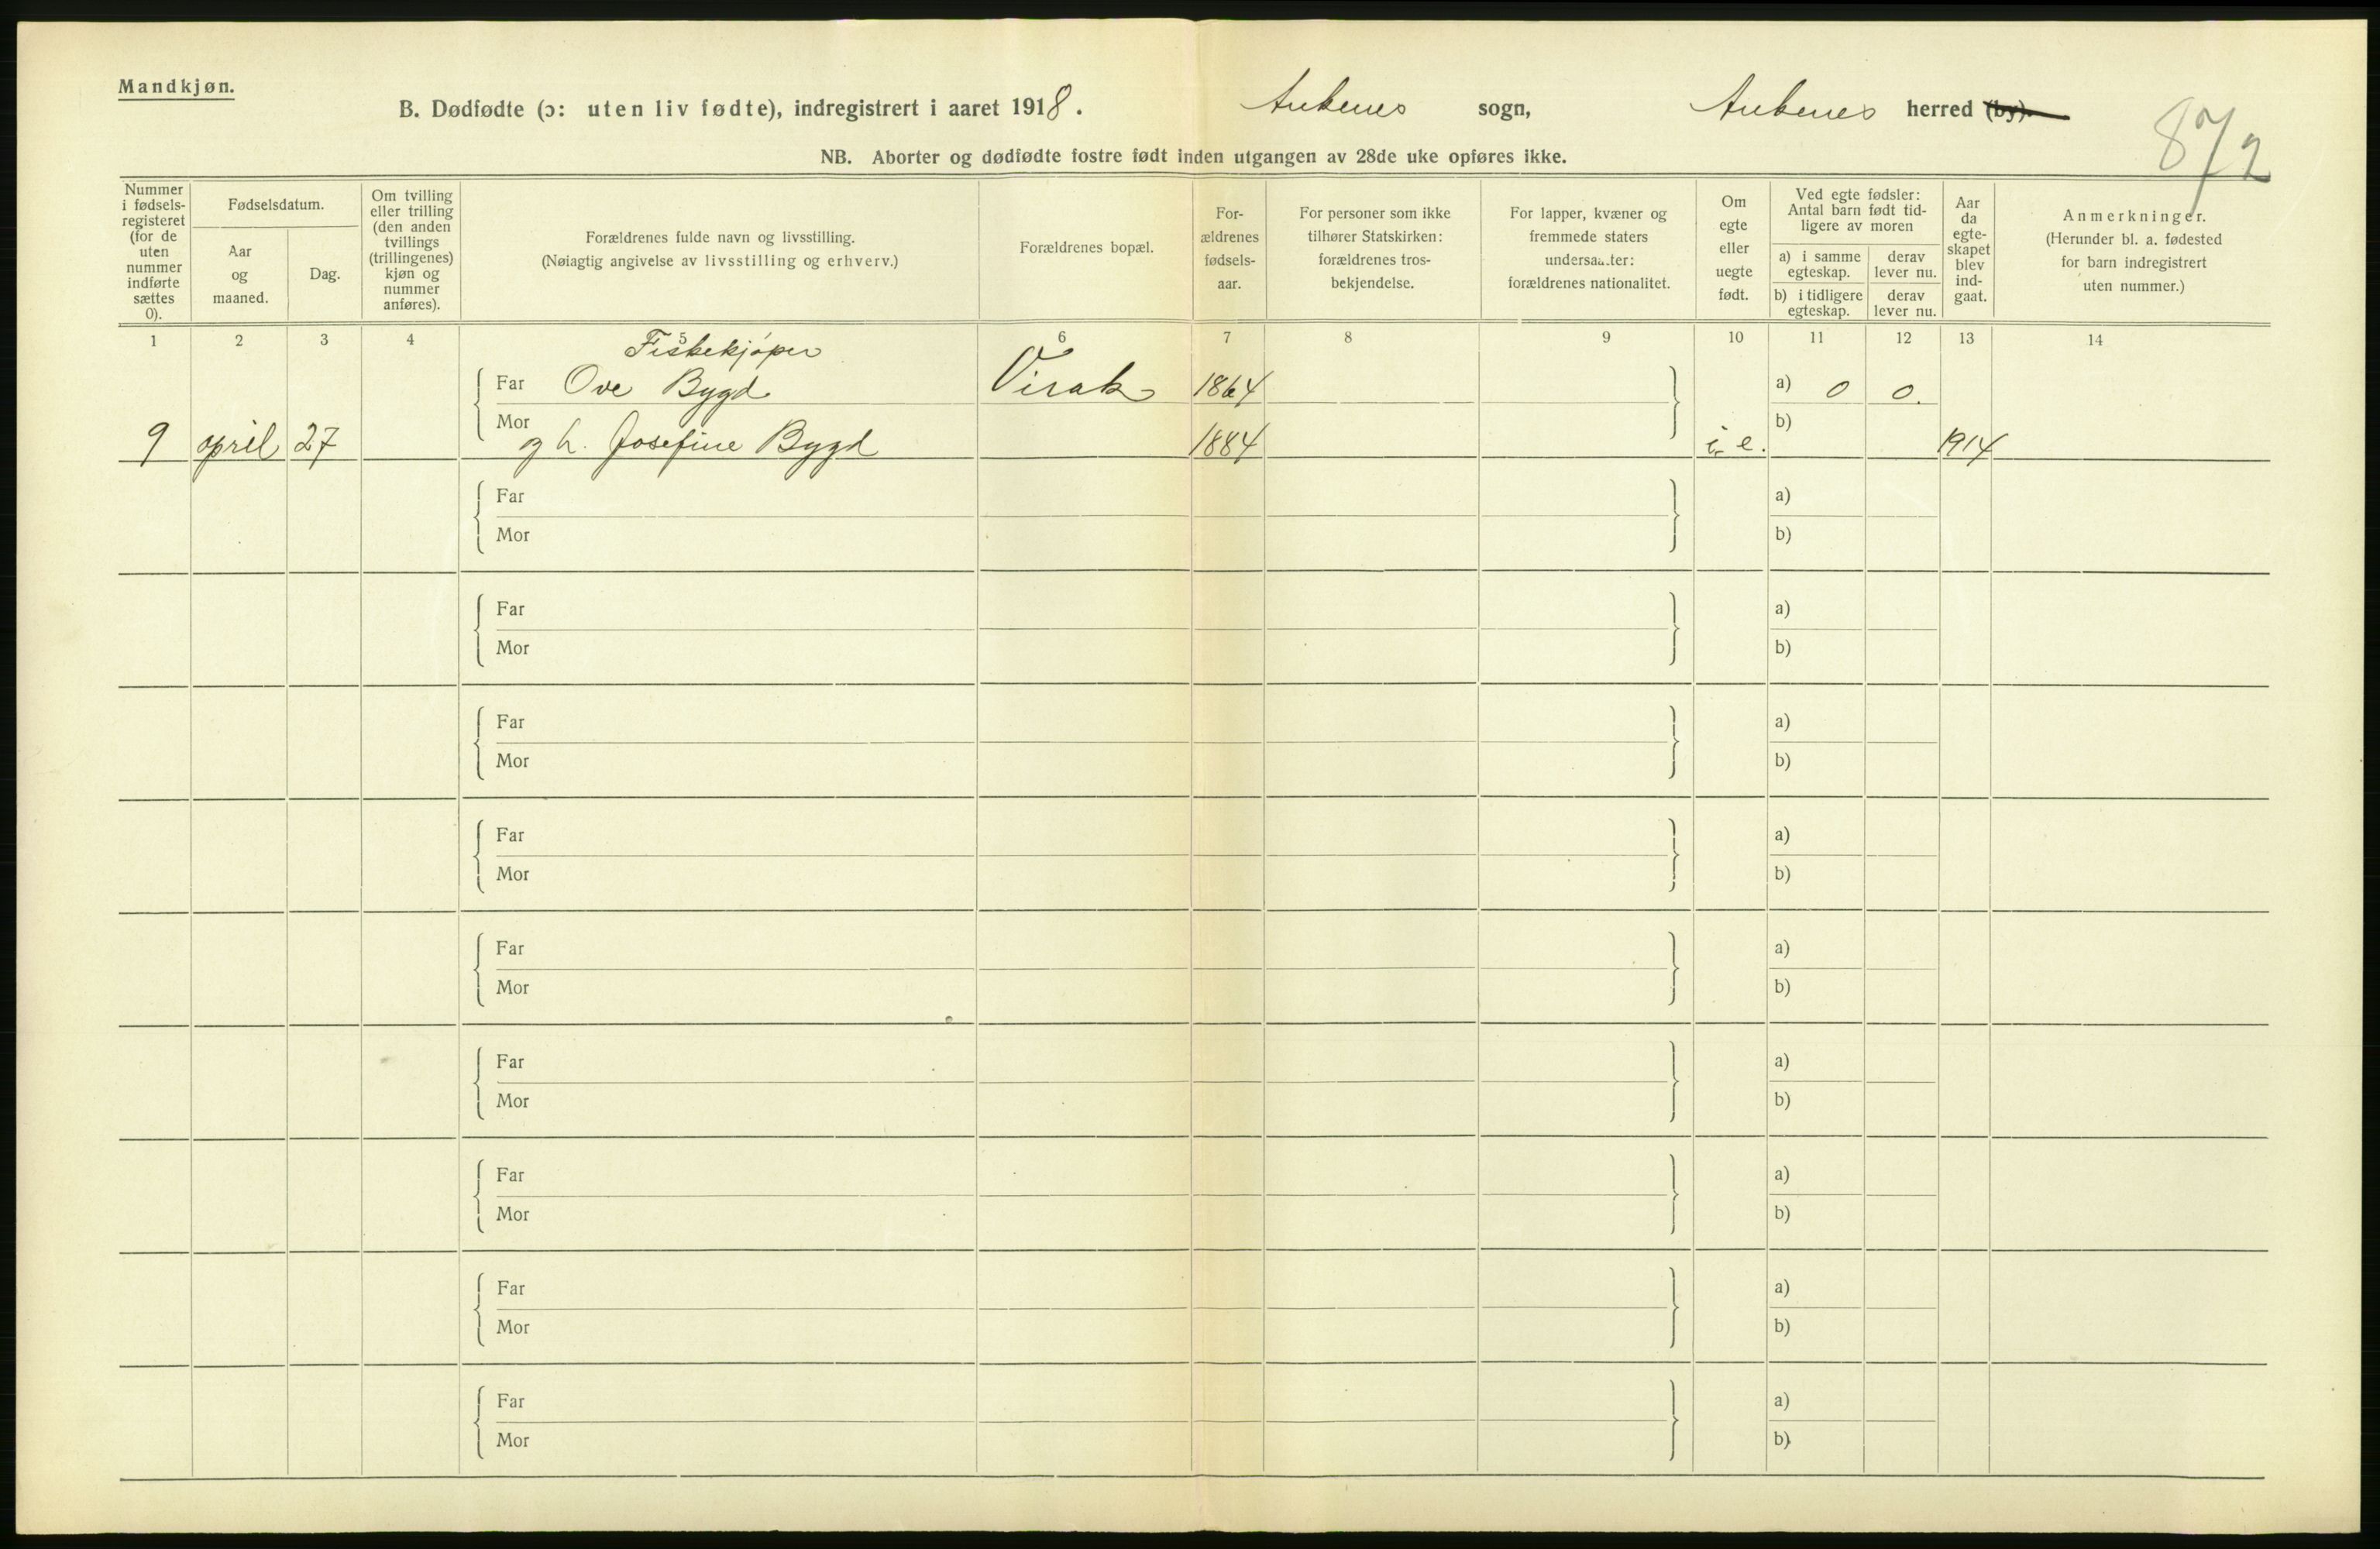 Mandkjøn.
B. Dødfødte (ɔ: uten liv fødte), indregistrert i aaret 1918. Ankenes sogn, Ankenes herred (by).
872
NB. Aborter og dødfødte fostre født inden utgangen av 28de uke opføres ikke.
Nummer i fødsels-registeret (for de uten nummer indførte sættes 0).
Fødselsdatum.
Aar og maaned.
Dag.
Om tvilling eller trilling (den anden tvillings (trillingenes) kjøn og nummer anføres).
Forældrenes fulde navn og livsstilling.
(Nøiagtig angivelse av livsstilling og erhverv.)
Forældrenes bopæl.
For-ældrenes fødsels-aar.
For personer som ikke tilhører Statskirken: forældrenes tros-bekjendelse.
For lapper, kvæner og fremmede staters undersaatter: forældrenes nationalitet.
Om egte eller uegte født.
Ved egte fødsler: Antal barn født tid-ligere av moren
a) i samme egteskap. derav lever nu.
b) i tidligere egteskap. derav lever nu.
Aar da egte-skapet blev ind-gaat.
Anmerkninger.
(Herunder bl. a. fødested for barn indregistrert uten nummer.)
1 2 3 4 5 6 7 8 9 10 11 12 13 14
Fiskekjøper
Far Ove Bygd Virak 1864 a) 0 0.
Mor b)
9 april 27 og h. Josefine Bygd 1884 i. e. 1914
Far a)
Mor b)
Far a)
Mor b)
Far a)
Mor b)
Far a)
Mor b)
Far a)
Mor b)
Far a)
Mor b)
Far a)
Mor b)
Far a)
Mor b)
Far a)
Mor b)